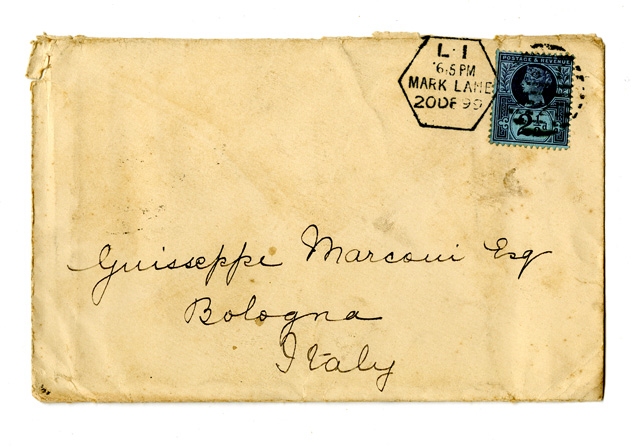 L·1
6.5 PM
MARK LANE
20 DE 99
POSTAGE & REVENUE
2½
Guisseppe Marconi Esq
Bologna
Italy